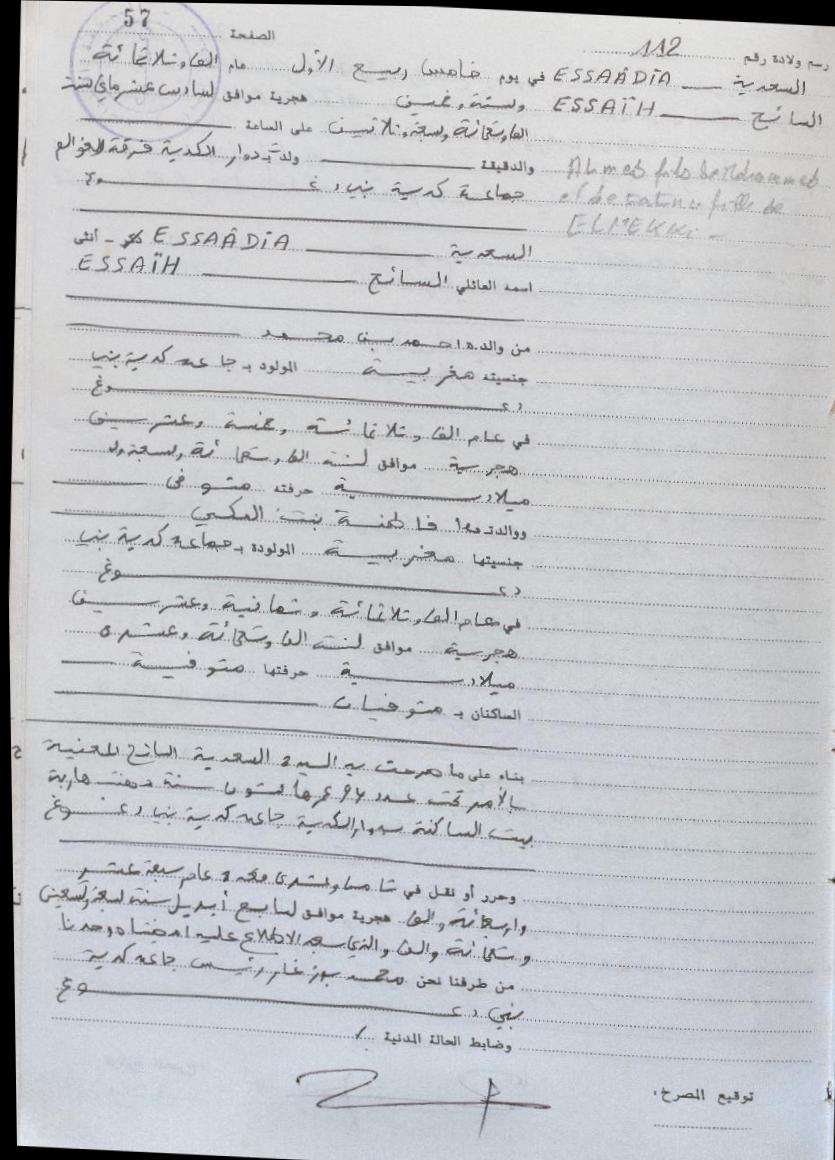 57
الصفحة
رسم ولادة رقم 112
السعدية ESSAÂDIA في يوم خامس ربيع الأول عام ألف وثلاثمائة
السائح ESSAÏH وستة وخمسين هجرية موافق لسادس عشر ماي سنة
ألف وتسعمائة وسبعة وثلاثين على الساعة
والدقيقة ولدت بدوار الكدية فرقة
جماعة كدية بني دغوغ
Ahmed fils de Mohammed
et de Fatna fille de
ELMEKKI
السعدية ESSAÂDIA ذكر - أنثى
اسمه العائلي السائح ESSAÏH
من والده أحمد بن محمد
جنسيته مغربية المولود بـ جماعة كدية بني
دغوغ
في عام ألف وثلاثمائة وخمسة وعشرين
هجرية موافق لسنة ألف وتسعمائة وسبعة
ميلادية حرفته متوفى
ووالدته فاطنة بنت المكي
جنسيتها مغربية المولودة بـ جماعة كدية بني
دغوغ
في عام ألف وثلاثمائة وثمانية وعشرين
هجرية موافق لسنة ألف وتسعمائة وعشرة
ميلادية حرفتها متوفية
الساكنان بـ متوفيان
بناء على ما صرحت به السيدة السعدية السائح المعنية
بالأمر تحت عدد عمرها ستون سنة مهنتها ربة
بيت الساكنة بدوار الكدية جماعة كدية بني دغوغ
وحرر أو نقل في عام سبعة عشر
وأربعمائة وألف هجرية موافق لسابع أبريل سنة سبعة وتسعين
وتسعمائة وألف والذي بعد الاطلاع عليه أمضاه وحدنا
من طرفنا نحن محمد رئيس جماعة كدية
بني دغوغ
وضابط الحالة المدنية
توقيع المصرح: